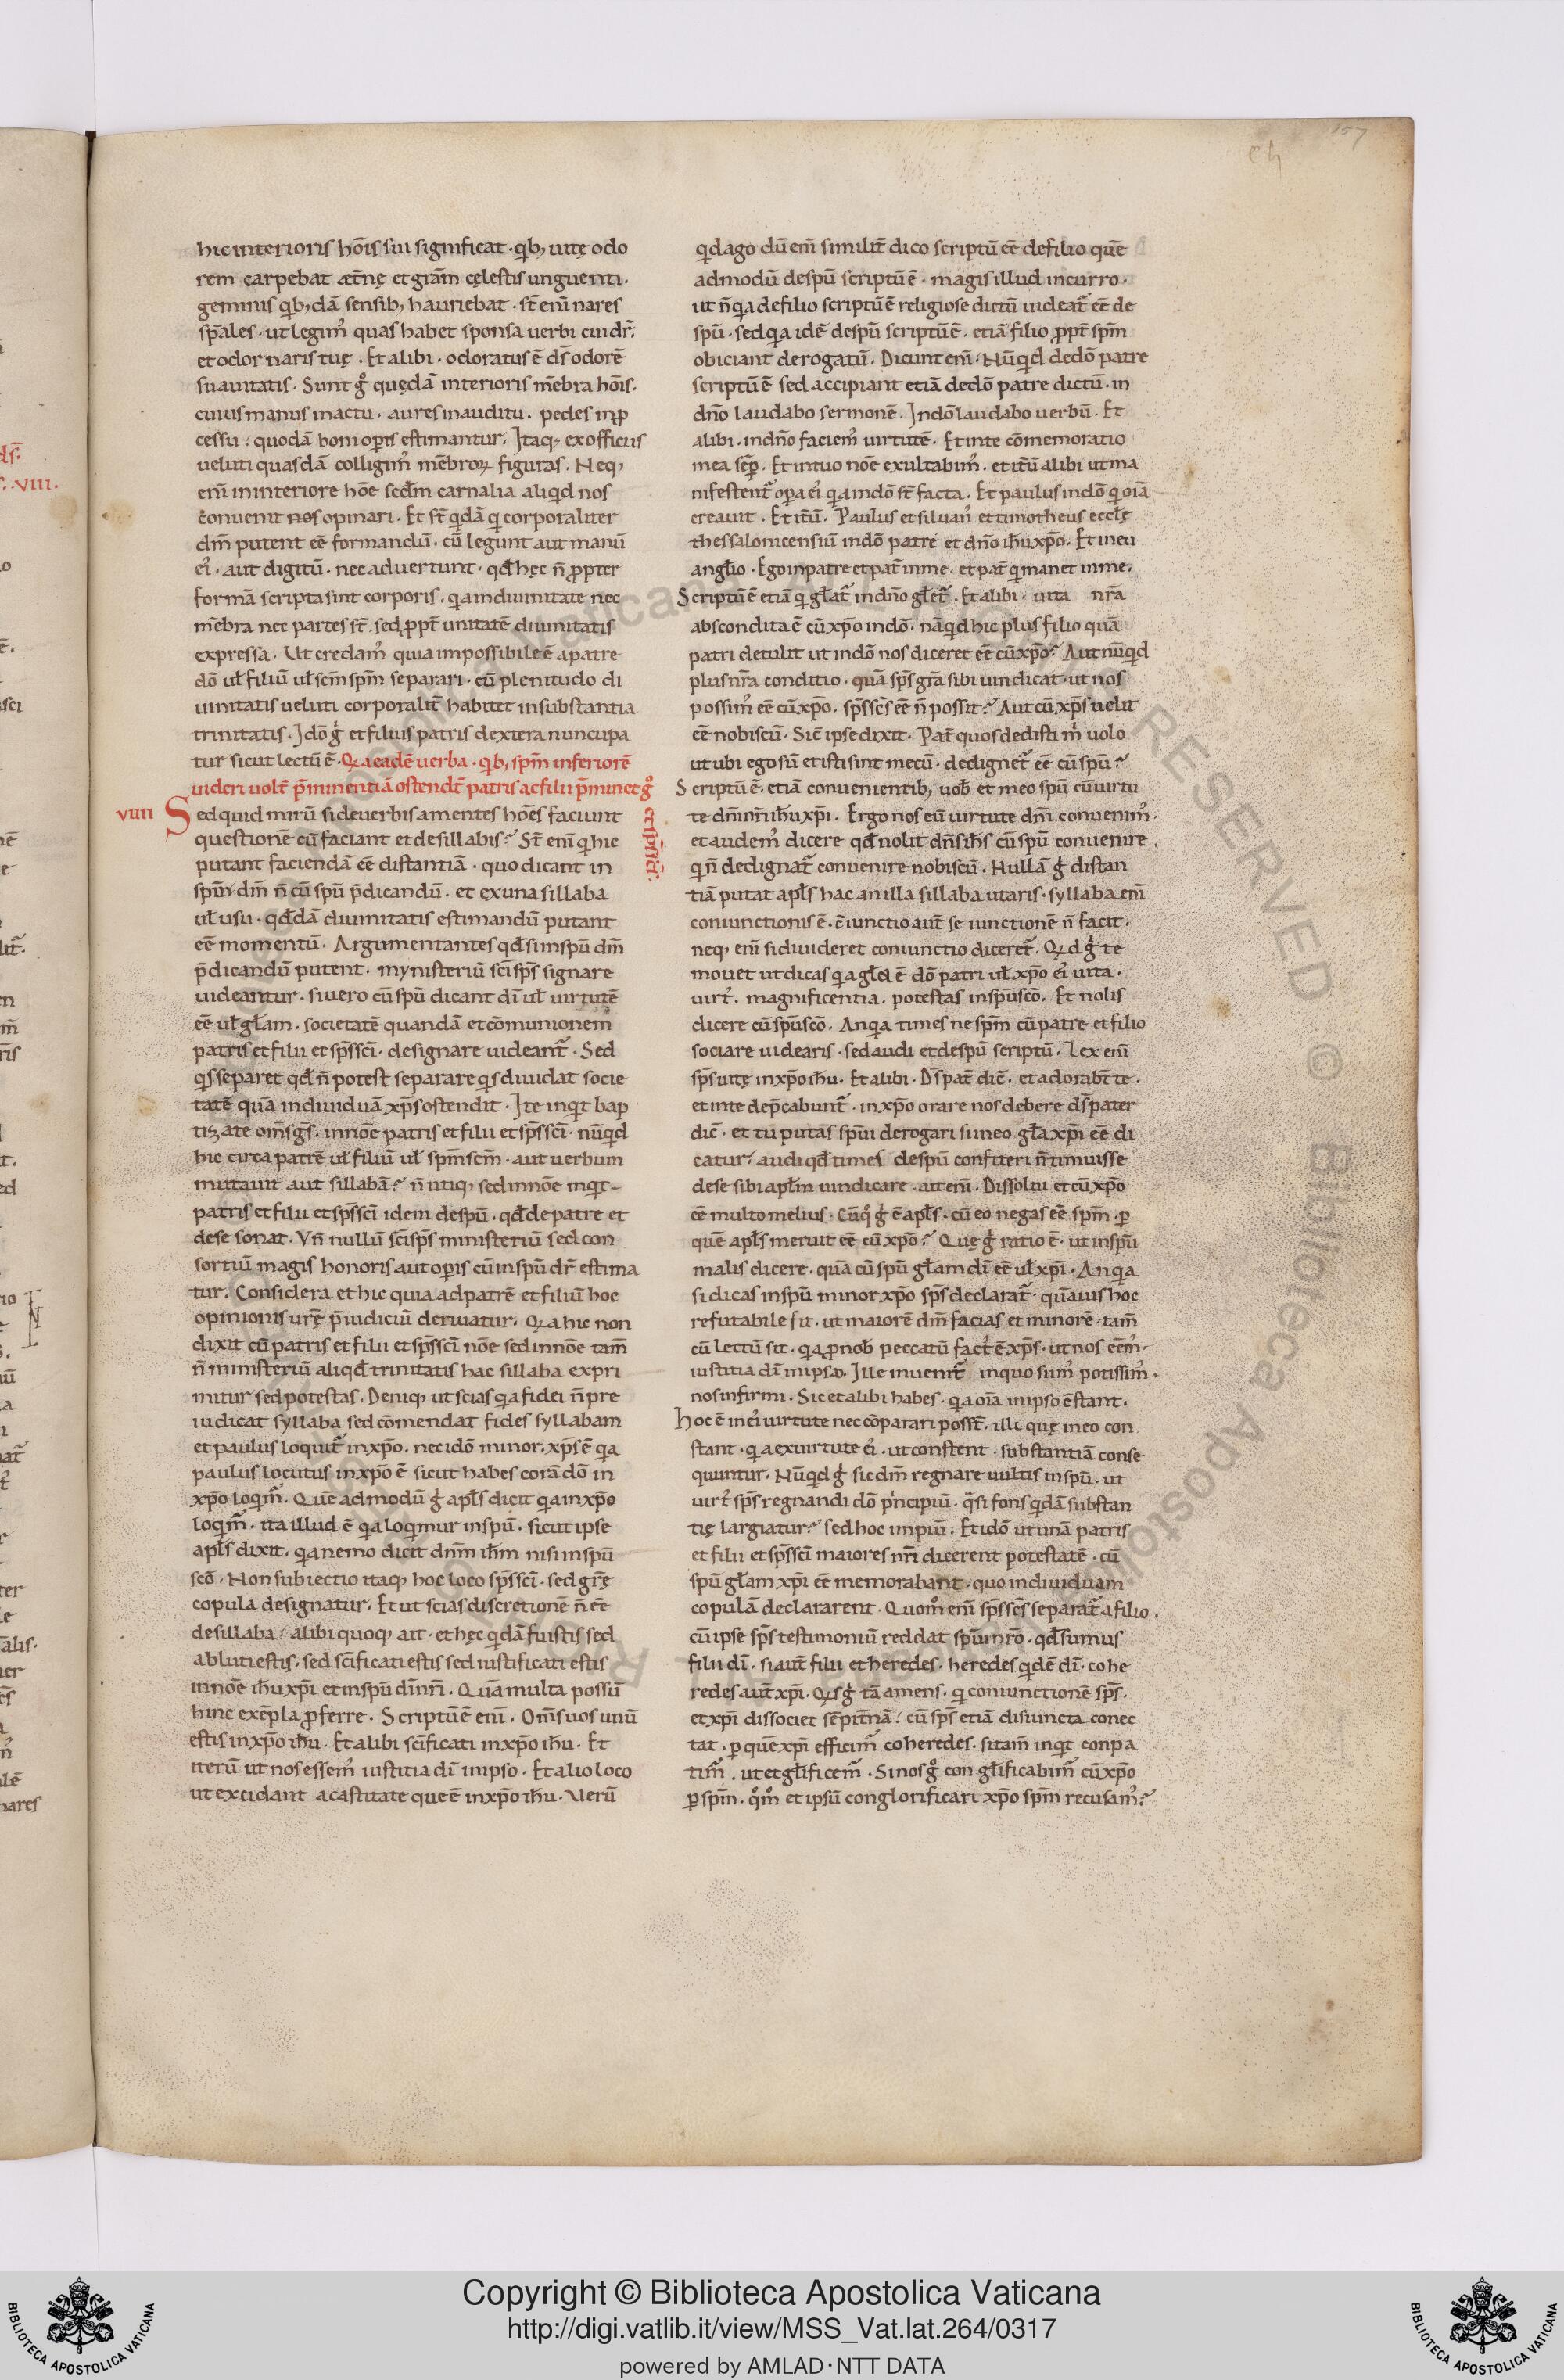 157
hic interioris hōis sui significat · qb; uitę odo
rem carpebat æt̄nę et grām cęlestis unguenti ·
geminis qb;dā sensib; hauriebat · st̄ enī nares
sp̄ales · ut legim᾽ quas habet sponsa uerbi cui dr̄.
et odor naris tuę · Et alibi · odoratus ē ds̄ odorē
suauitatis · Sunt g° quędā interioris mēbra hōis ·
cuius manus in actu · aures in auditu · pedes in ꝓ
cessu · quodā boni opis estimantur · Itaq; ex officiis
ueluti quasdā colligim᾽ mēbroꝝ figuras · Neq;
enī in interiore hōe scdm̄ carnalia aliqd nos
conuenit nos opinari · Et st̄ qdā q corporaliter
dm̄ putent eē formandū · cū legunt aut manū
ei᾽ · aut digitū · nec aduertunt · qd̄ hęc n̄ ꝓpter
formā scripta sint corporis · qa in diuinitate nec
mēbra nec partes st̄ · sed ꝓpt̄ unitatē diuinitatis
expressa · Ut credam᾽ quia impossibile ē a patre
dō ul̄ filiū ul̄ scm̄ spm̄ separari · cū plenitudo di
uinitatis ueluti corporalit̄ habitet in substantia
trinitatis · Idō ġ et filius patris dextera nuncupa
tur sicut lectū ē · Qa eadē uerba · qb; spm̄ inferiorē
uideri uolt̄ p̄minentiā ostendt̄ patris ac filii p̄minet g°
et sps̄ sci᾽
viiii Sed quid mirū si de uerbis amentes hōes faciunt
questionē cū faciant et de sillabis? St̄ enī q hic
putant faciendā eē distantiā · quo dicant in
spū dm̄ n̄ cū spū p̄dicandū · et ex una sillaba
ul̄ usu · qd̄dā diuinitatis estimandū putant
eē momentū · Argumentantes qd̄ si in spū dm̄
p̄dicandū putent · mynisteriū sci sps̄ signare
uideantur · si uero cū spū dicant dī ul̄ uirtutē
eē ul̄ gl̄am · societatē quandā et cōmunionem
patris et filii et sps̄ sci · designare uideant̄ · Sed
qs separet qd̄ n̄ potest separare qs diuidat socie
tatē quā indiuiduā xps̄ ostendit · Ite inqt bap
tizate om̄s gs̄ · in nōe patris et filii et sps̄ sci · nūqd
hic circa patrē ul̄ filiū ul̄ spm̄ scm̄ · aut uerbum
mutauit aut sillabā? n̄ utiq; sed in nōe inqt ·
patris et filii et sps̄ sci idem de spū · qd̄ de patre et
de se sonat · Vn̄ nullū sci sps̄ ministeriū sed con
sortiū magis honoris aut opis cū in spū dr̄ estima
tur · Considera et hic quia ad patrē et filiū hoc
opinionis urę p̄iudiciū deriuatur · Qa hic non
dixit cū patris et filii et sps̄ sci nōe sed in nōe tam̄
n̄ ministeriū aliqd̄ trinitatis hac sillaba expri
mitur sed potestas · Deniq; ut scias qa fidei n̄ pre
iudicat syllaba sed cōmendat fides syllabam
et paulus loquit̄ in xp̄o · nec idō minor · xps̄ ē qa
paulus locutus in xp̄o ē sicut habes corā dō in
xp̄o loqm̄ · Quē ad modū ġ apl̄s dicit qa in xp̄o
loqm̄ · ita illud ē qa loqmur in spū · sicut ipse
apl̄s dixit · qa nemo dicit dnm̄ ihm̄ nisi in spū
scō · Non subiectio itaq; hoc loco sps̄ sci · sed grę
copula designatur · Et ut scias discretionē n̄ eē
de sillaba · alibi quoq; ait · et hęc qdā fuistis sed
abluti estis · sed scificati estis sed iustificati estis
in nōe ihu xp̄i et in spū dī nr̄i · Quā multa possū
hinc exēpla ꝓferre · Scriptū ē enī · Om̄s uos unū
estis in xp̄o ihu · Et alibi scificati in xp̄o ihu · Et
iterū ut nos essem᾽ iustitia dī in ipso · Et alio loco
ut excidant a castitate que ē in xp̄o ihu · Verū
qd ago dū enī similit̄ dico scriptū eē de filio quē
admodū de spū scriptū ē · magis illud incurro ·
ut n̄ qa de filio scriptū ē religiose dictū uideat̄ eē de
spū · sed qa idē de spū scriptū ē · etiā filio ꝓpt̄ spm̄
obiciant derogatū · Dicunt enī · Nūqd de dō patre
scriptū ē sed accipiant etiā de dō patre dictū · in
dno laudabo sermonē · In dō laudabo uerbū · Et
alibi · in dno faciem᾽ uirtutē · Et in te cōmemoratio
mea sēp · Et in tuo nōe exultabim᾽ · et it̄ū alibi ut ma
nifestent̄ opa ei᾽ qa in dō st̄ facta · Et paulus in dō q oīa
creauit · Et it̄ū · Paulus et siluan᾽ et timotheus eccl̄ę
thessalonicensiū in dō patre et dno ihu xp̄o · Et in eu
angl̄io · Ego in patre et pat̄ in me · et pat̄ q manet in me ·
Scriptū ē etiā q gl̄at̄ in dno gl̄et̄ · Et alibi · uita nr̄a
abscondita ē cū xp̄o in dō · nā qd hic plus filio quā
patri detulit ut in dō nos diceret eē cū xp̄o? Aut nūqd
plus nr̄a conditio · quā sps̄ gr̄a sibi uindicat · ut nos
possim᾽ eē cū xp̄o · sps̄ scs̄ eē n̄ possit? Aut cū xps̄ uelit
eē nobiscū · Sic ipse dixit · Pat̄ quos dedisti m̍ uolo
ut ubi ego sū et isti sint mecū · dedignet̄ eē cū spū?
Scriptū ē · etiā conuenientib; uob̄ et meo spū cū uirtu
te dnī nr̄i ihu xp̄i · Ergo nos cū uirtute dnī conuenim᾽ ·
et audem᾽ dicere qd̄ nolit dns̄ ihs̄ cū spū conuenire ·
q n̄ dedignat̄ conuenire nobiscū · Nullā ġ distan
tiā putat apl̄s hac an illa sillaba utaris · syllaba enī
coniunctionis ē · c̄iunctio aut̄ se iunctionē n̄ facit ·
neq; enī si diuideret coniunctio diceret̄ · Qd ġ te
mouet ut dicas qa gl̄a ē dō patri ul̄ xp̄o ei᾽ uita ·
uirt᾽ · magnificentia · potestas in spū scō · Et nolis
dicere cū spū scō · An qa times ne spm̄ cū patre et filio
sociare uidearis · sed audi et de spū scriptū · Lex enī
sps̄ uitę in xp̄o ihu · Et alibi · Ds̄ pat̄ dic̄ · et adorabt̄ te ·
et in te dep̄cabunt̄ · in xp̄o orare nos debere ds̄ pater
dic̄ · et tu putas spūi derogari si in eo gl̄a xp̄i eē di
catur · audi qd̄ times de spū confiteri n̄ timuisse
de se sibi apl̄m uindicare · ait enī · Dissolui et cū xp̄o
eē multo melius · Cūq° ġ ē apl̄s · cū eo negas eē spm̄ · ꝑ
quē apl̄s meruit eē cū xp̄o? Quę ġ ratio ē · ut in spū
malis dicere · quā cū spū gl̄am dī eē ul̄ xp̄i · An qa
si dicas in spū minor xp̄o sps̄ declarat̄ · quāuis hoc
refutabile sit · ut maiorē dm̄ facias et minorē · tam̄
cū lectū sit · qa ꝓ nob̄ peccatū fact᾽ ē xps̄ · ut nos eēm᾽ ·
iustitia dī in ipso · Ille inuenit̄ in quo sum᾽ potissim᾽ ·
nos infirmi · Sic et alibi habes · qa oīa in ipso c̄stant ·
Hoc ē in ei᾽ uirtute nec cōparari posst̄ · illi quę in eo con
stant · qa ex uirtute ei᾽ · ut constent · substantiā conse
quuntur · Nūqd ġ sic dm̄ regnare uultis in spū · ut
uirt᾽ sps̄ regnandi dō pncipiū · qsi fons qdā substan
tię largiatur? sed hoc impiū · Et idō ut unā patris
et filii et sps̄ sci maiores nr̄i dicerent potestatē · cū
spū gl̄am xp̄i eē memorabant · quo indiuiduam
copulā declararent · Quom° enī sps̄ scs̄ separat̄ a filio ·
cū ipse sps̄ testimoniū reddat spūi nr̄o · qd̄ sumus
filii dī · si aut̄ filii et heredes · heredes qdē dī · cohe
redes aut̄ xp̄i · Qs ġ tā amens · q coniunctionē sps̄ ·
et xp̄i dissociet sēpit̄nā · cū sps̄ etiā disiuncta conec
tat · ꝑ quē xp̄i efficim̄ coheredes · si tam̄ inqt conpa
tim̄ · ut et gl̄ificem̄ · Si nos g° con gl̄ificabim̄ cū xp̄o
ꝑ spm̄ · q°m° et ipsū conglorificari xp̄o spm̄ recusam᾽?
Copyright © Biblioteca Apostolica Vaticana
http://digi.vatlib.it/view/MSS_Vat.lat.264/0317
powered by AMLAD·NTT DATA